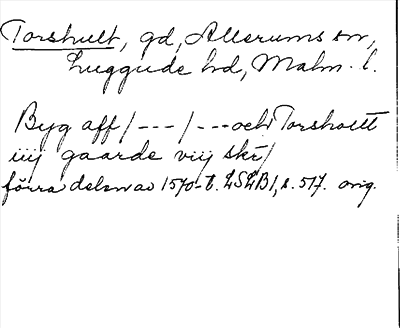 Torshult, gd, Allerums sn,
Luggude hd, Malm. l.
Byg aff / --- / --- och Torsholtt
iiij gaarde viij skr/
förra delen av 1570-t. LSLB1, s. 517. orig.